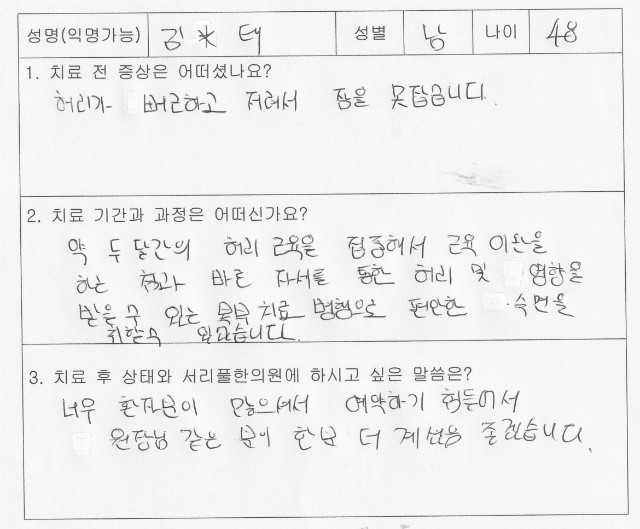 성명(익명가능) 김 * 태 성별 남 나이 48
1. 치료 전 증상은 어떠셨나요?
허리가 뻐근하고 저려서 잠을 못잡습니다.
2. 치료 기간과 과정은 어떠신가요?
약 두달간의 허리 근육을 집중해서 근육 이완을
하는 침과 바른 자세를 통한 허리 및 영향을
받을 수 있는 복부 치료 병행으로 편안한 숙면을
취할수 있었습니다.
3. 치료 후 상태와 서리풀한의원에 하시고 싶은 말씀은?
너무 환자분이 많으셔서 예약하기 힘들어서
원장님 같은 분이 한분 더 계셨음 좋겠습니다.